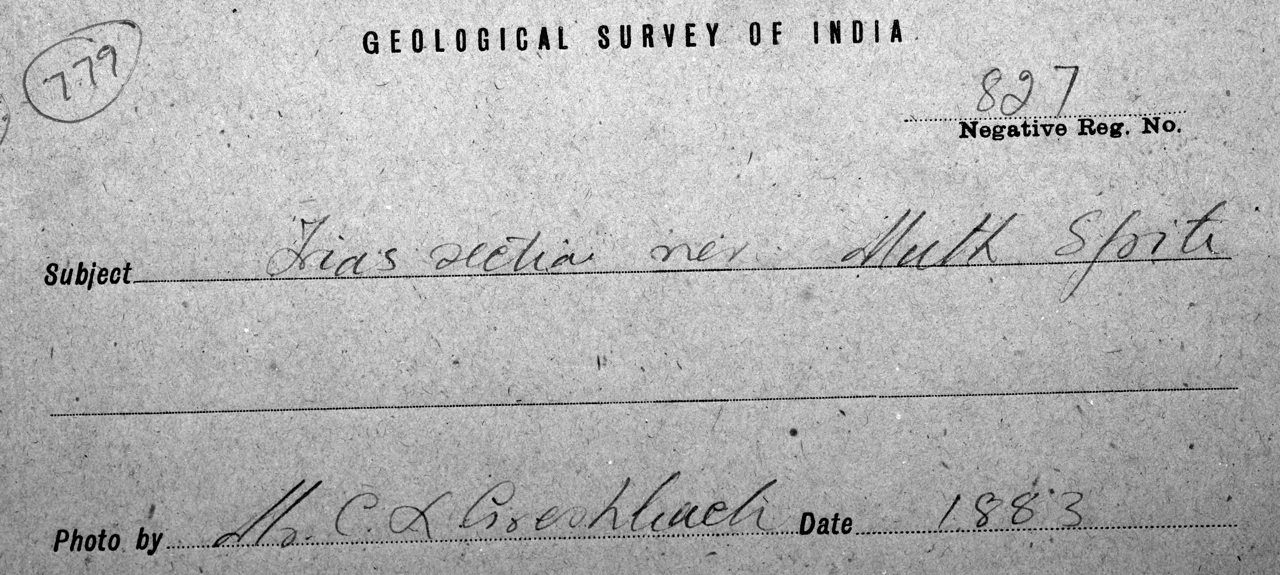 GEOLOGICAL SURVEY OF INDIA
779
827
Negative Reg. No.
Subject Trias section near Muth Spiti
Photo by Mr. C. L Griesbach Date 1883